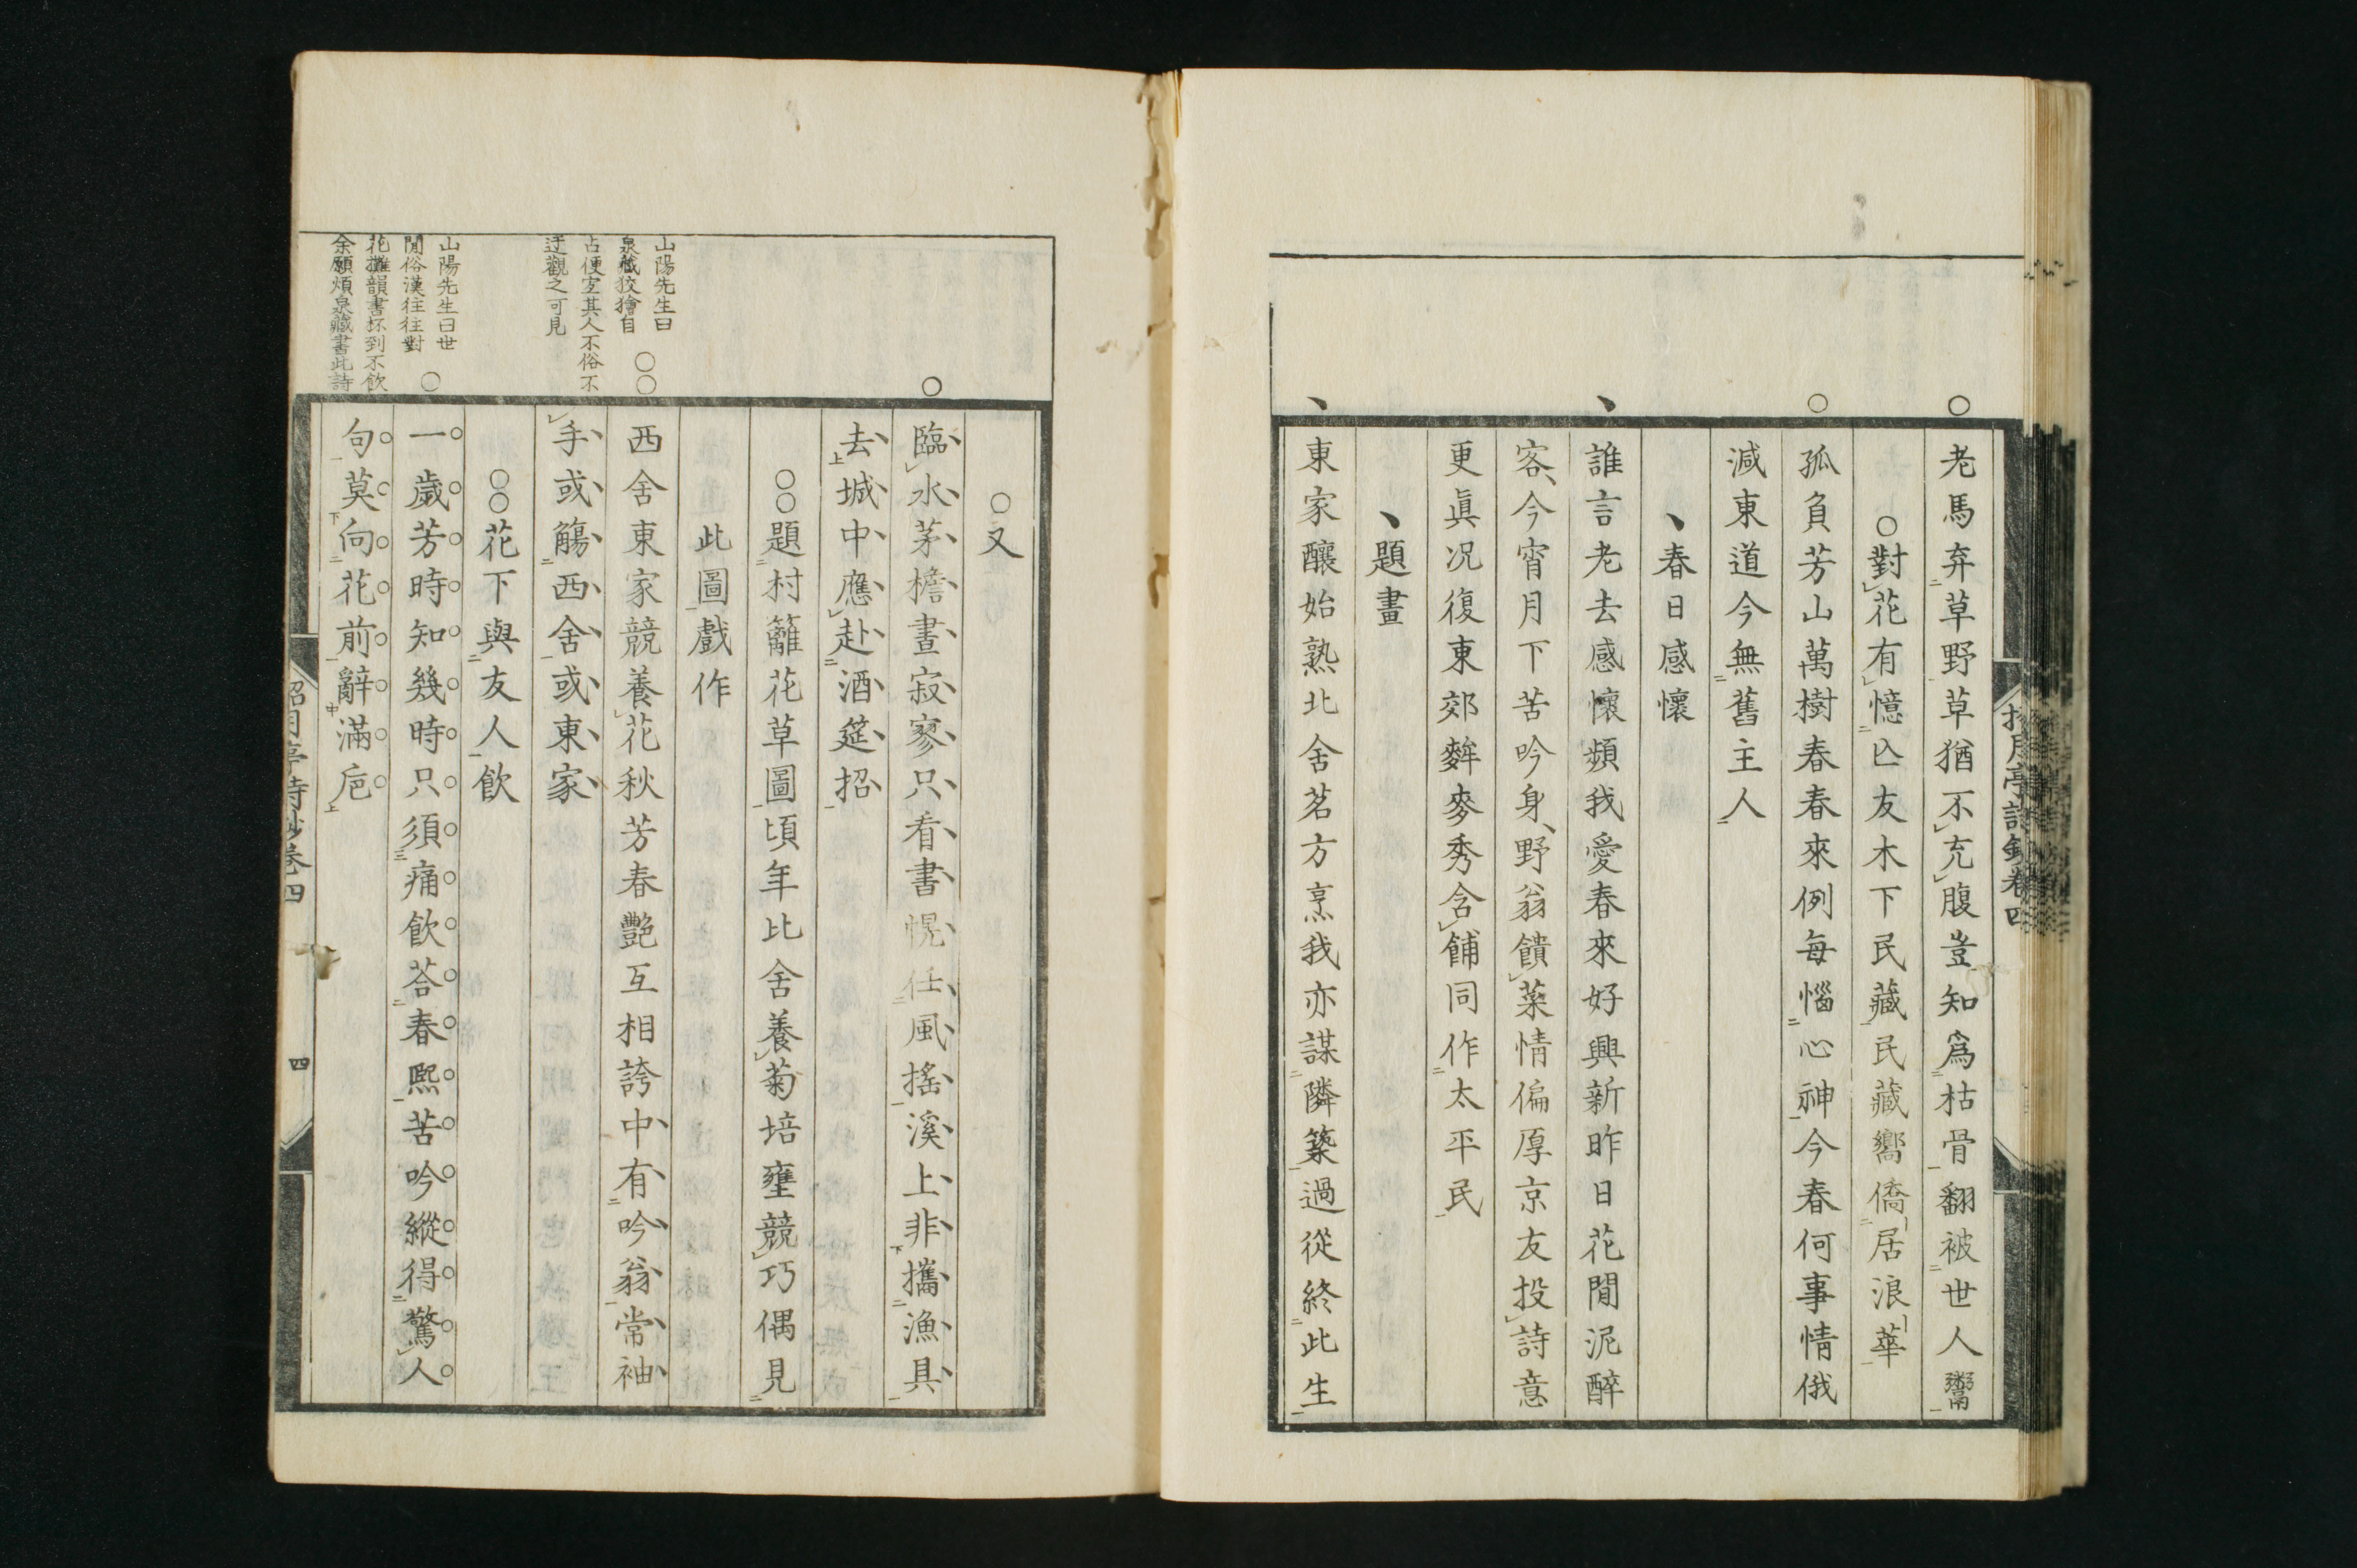 老馬弃草野草猶不充腹豈知爲枯骨翻被世人鬻
○對花有憶亡友木下民藏民藏嚮僑居浪華
孤負芳山萬樹春春來例每惱心神今春何事情俄
減東道今無舊主人
春日感懷
誰言老去感懷頻我愛春來好興新昨日花閒泥醉
客今宵月下苦吟身野翁饋菜情偏厚京友投詩意
更眞况復東郊麰麥秀含餔同作太平民
題畫
東家釀始熟北舍茗方烹我亦謀隣築過從終此生
招月亭詩鈔卷四
○又
臨水茅檐晝寂寥只看書幌任風搖溪上非攜漁具
去城中應赴酒筵招
○○題村籬花草圖頃年比舍養菊培壅競巧偶見
此圖戲作
西舍東家競養花秋芳春艷互相誇中有吟翁常袖
手或觴西舍或東家
○○花下與友人飲
一歲芳時知幾時只須痛飲荅春熙苦吟縱得驚人
句莫向花前辭滿巵
山陽先生曰
泉藏狡獪自
占便宜其人不俗不
迂觀之可見
山陽先生曰世
閒俗漢往往對
花攤韻書坏到不飲
余願煩泉藏書此詩
招月亭詩鈔卷四
四